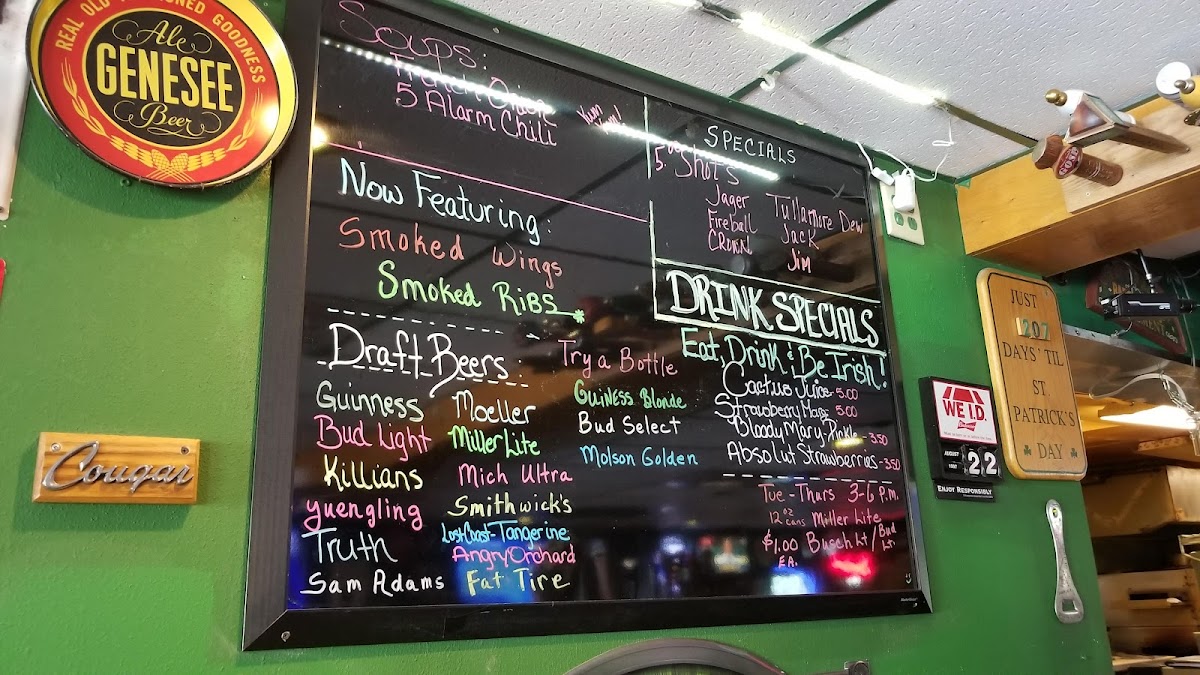 REAL OLD FASHIONED GOODNESS
Ale
GENESEE
Beer
Cougar
Soups:
French Onion
5 Alarm Chili
Yum
Yum!
Now Featuring:
Smoked Wings
Smoked Ribs
Draft Beers:
Guinness
Bud Light
Killians
Yuengling
Truth
Sam Adams
Moeller
Miller Lite
Mich Ultra
Smithwick's
Lost Coast-Tangerine
Angry Orchard
Fat Tire
Try a Bottle
GuiNess Blonde
Bud Select
Molson Golden
SPECIALS
5.00 Shot's
Jager
Fireball
CROWN
Tullamore Dew
Jack
Jim
DRINK SPECIALS
Eat, Drink & Be Irish!
Cactus Juice-5.00
Strawberry Marg 5.00
Bloody Mary-Pickle-3.50
Absolut Strawberries-3.50
Tue-Thurs 3-6 p.m.
12 oz cans Miller Lite
$1.00 EA. Busch Lt/Bud Lt
WE I.D.
AUGUST
22
ENJOY RESPONSIBLY
JUST
207
DAYS' TIL
ST
PATRICK'S
DAY